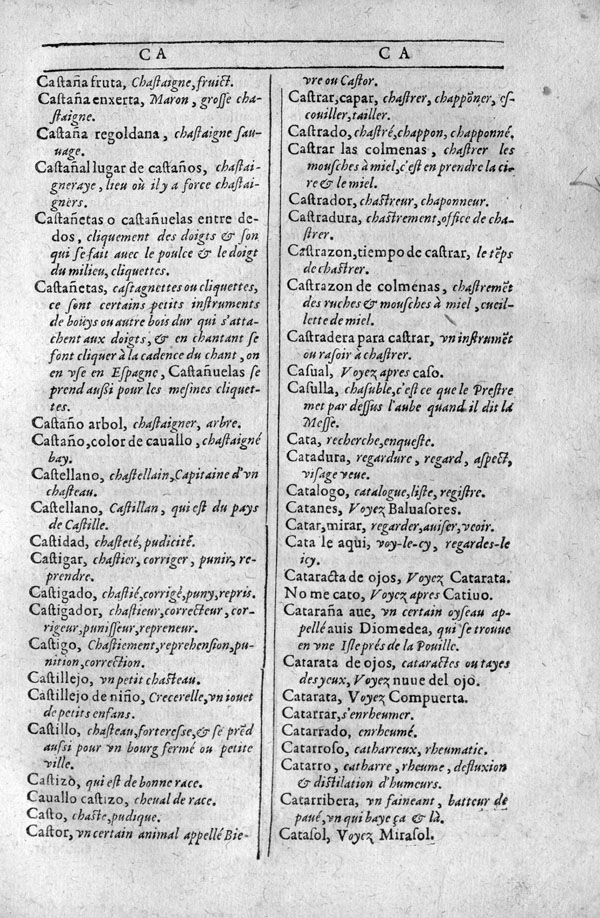 CA
CA
Castaña fruta, Chastaigne, fruict.
Castaña enxerta, Maron, grosse cha-
staigne.
Castaña regoldana, chastaigne sau-
uage.
Castañal lugar de castaños, chastai-
gneraye, lieu où il y a force chastai-
gners.
Castañetas o castañuelas entre de-
dos, cliquement des doigts & son
qui se fait auec le poulce & le doigt
du milieu, cliquettes.
Castañetas, castagnettes ou cliquettes,
ce sont certains petits instruments
de boüys ou autre bois dur qui s'atta-
chent aux doigts, & en chantant se
font cliquer à la cadence du chant, on
en vse en Espagne, Castañuelas se
prend aussi pour les mesmes cliquet-
tes.
Castaño arbol, chastaigner, arbre.
Castaño, color de cauallo, chastaigné
bay.
Castellano, chastellain, Capitaine d'vn
chasteau.
Castellano, Castillan, qui est du pays
de Castille.
Castidad, chasteté, pudicité.
Castigar, chastier, corriger, punir, re-
prendre.
Castigado, chastié, corrigé, puny, repris.
Castigador, chastieur, correcteur, cor-
rigeur, punisseur, repreneur.
Castigo, Chastiement, reprehension, pu-
nition, correction.
Castillejo, vn petit chasteau.
Castillejo de niño, Crecerelle, vn iouet
de petits enfans.
Castillo, chasteau, forteresse, & se prẽd
aussi pour vn bourg fermé ou petite
ville.
Castizo, qui est de bonne race.
Cauallo castizo, cheual de race.
Casto, chaste, pudique.
Castor, vn certain animal appellé Bie-
vre ou Castor.
Castrar, capar, chastrer, chapponer, es-
couiller, tailler.
Castrado, chastré, chappon, chapponné.
Castrar las colmenas, chastrer les
mousches à miel, c'est en prendre la ci-
re & le miel.
Castrador, chastreur, chaponneur.
Castradura, chastrement, office de cha-
strer.
Castrazon, tiempo de castrar, le tẽps
de chastrer.
Castrazon de colmenas, chastremẽt
des ruches & mousches à miel, cueil-
lette de miel.
Castradera para castrar, vn instrumẽt
ou rasoir à chastrer.
Casual, Voyez apres caso.
Casulla, chasuble, c'est ce que le Prestre
met par dessus l'aube quand il dit la
Messe.
Cata, recherche, enqueste.
Catadura, regardure, regard, aspect,
visage veue.
Catalogo, catalogue, liste, registre.
Catanes, Voyez Baluasores.
Catar, mirar, regarder, auiser, veoir.
Cata le aqui, voy-le-cy, regardes-le
icy.
Cataracta de ojos, Voyez Catarata.
No me cato, Voyez apres Catiuo.
Cataraña aue, vn certain oyseau ap-
pellé auis Diomedea, qui se trouue
en vne Isle prés de la Pouille.
Catarata de ojos, cataractes ou tayes
des yeux, Voyez nuue del ojo.
Catarata, Voyez Compuerta.
Catarrar, s'enrheumer.
Catarrado, enrheumé.
Catarroso, catharreux, rheumatic.
Catarro, catharre, rheume, defluxion
& distilation d'humeurs.
Catarribera, vn faineant, batteur de
paué, vn qui baye ça & là.
Catasol, Voyez Mirasol.